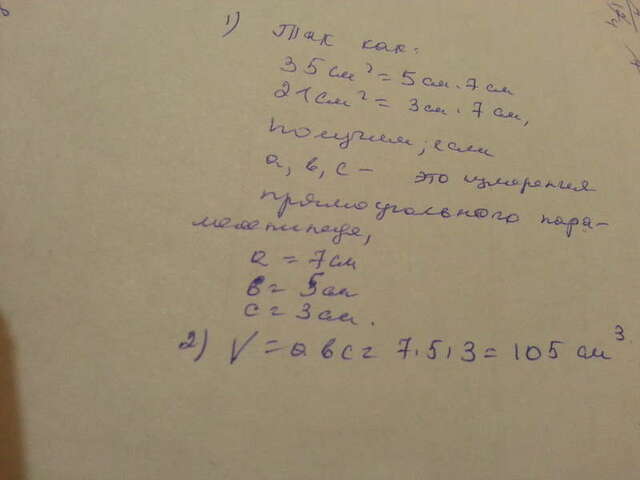 1) Так как:
35 см² = 5 см · 7 см
21 см² = 3 см · 7 см,
получим, если
a, b, c - это измерения
прямоугольного пара-
лелепипеда,
a = 7 см
b = 5 см
c = 3 см.
2) V = abc = 7·5·3 = 105 см³